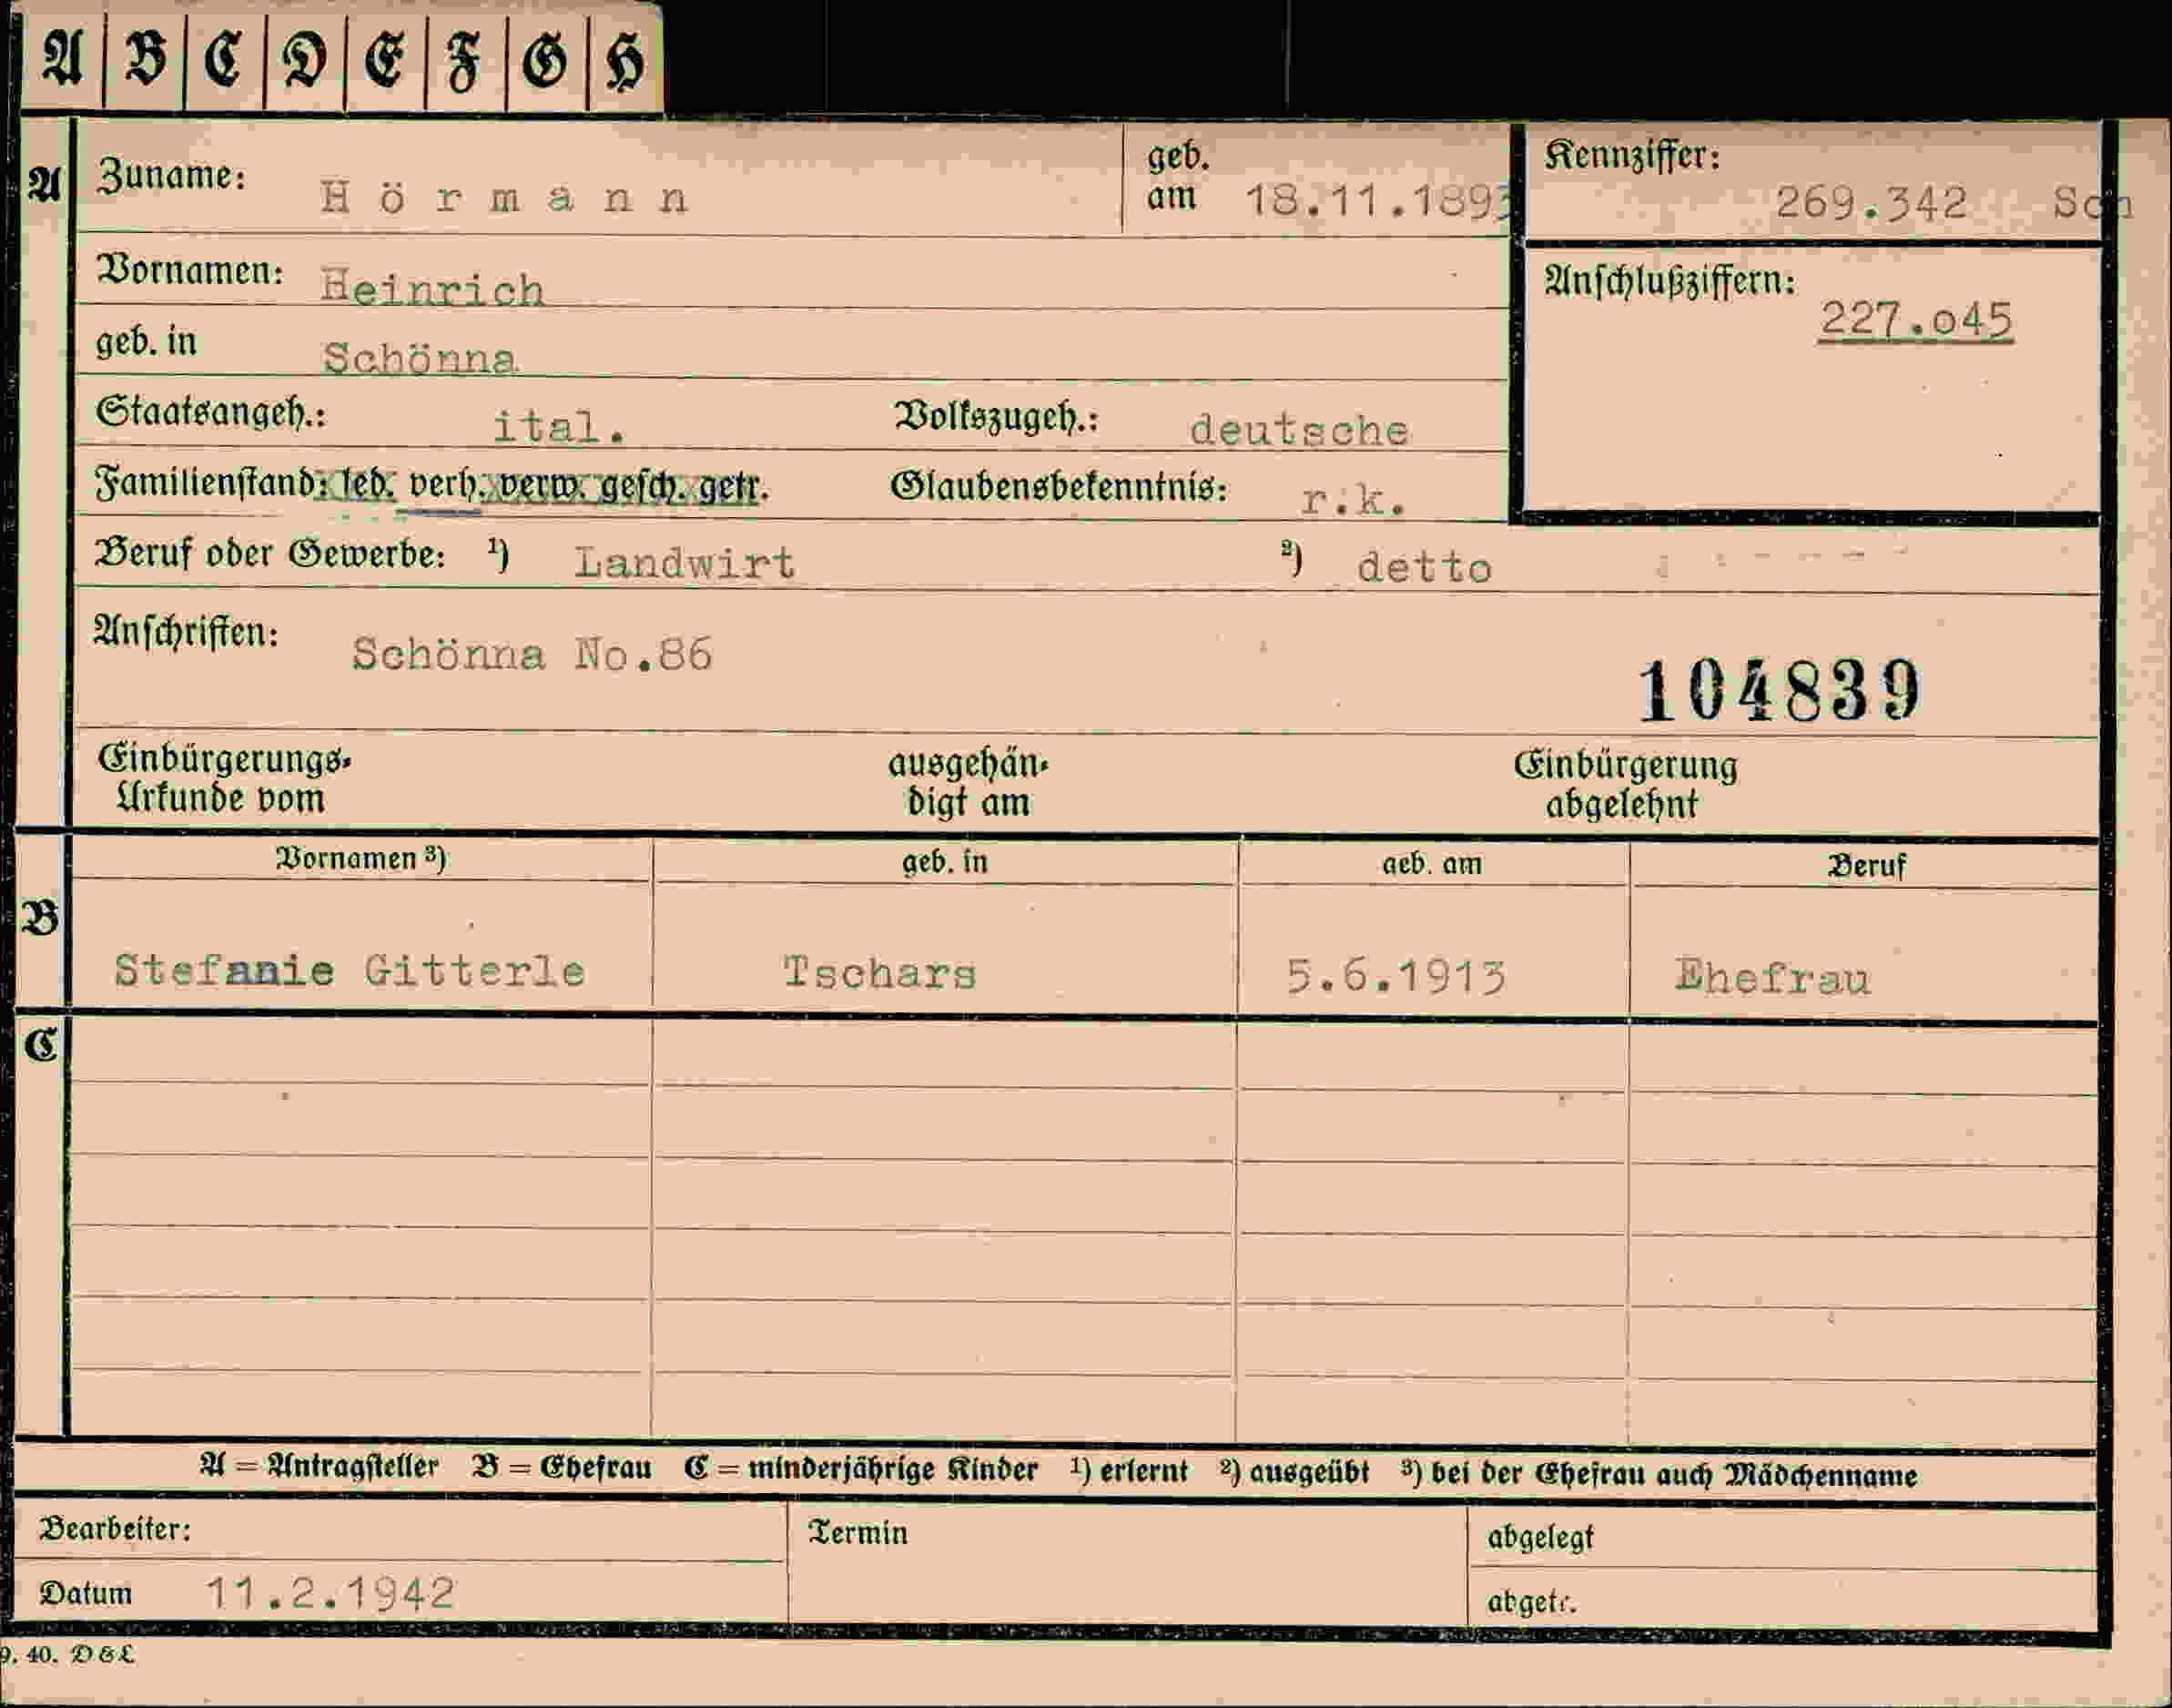 A B C D E F G H
A Zuname: Hörmann geb. am 18.11.1893 Kennziffer: 269.342 Sch
Vornamen: Heinrich Anschlußziffern: 227.o45
geb. in Schönna
Staatsangeh.: ital. Volkszugeh.: deutsche
Familienstand: led. verh. verw. gesch. getr. Glaubensbekenntnis: r.k.
Beruf oder Gewerbe: ¹) Landwirt ²) detto
Anschriften: Schönna No.86
104839
Einbürgerungs- ausgehän- Einbürgerung
Urkunde vom digt am abgelehnt
Vornamen ³) geb. in geb. am Beruf
B Stefanie Gitterle Tschars 5.6.1913 Ehefrau
C
A = Antragsteller B = Ehefrau C = minderjährige Kinder ¹) erlernt ²) ausgeübt ³) bei der Ehefrau auch Mädchenname
Bearbeiter: Termin abgelegt
Datum 11.2.1942 abgetr.
9. 40. D & L